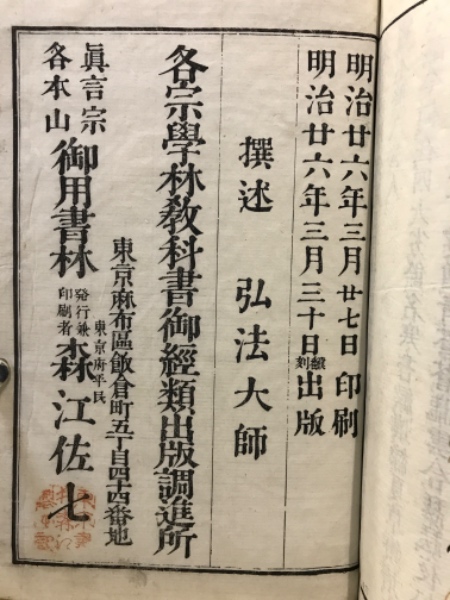 明治廿六年三月廿七日印刷
明治廿六年三月三十日飜刻出版
撰述 弘法大師
各宗學林教科書御經類出版調進所
東京麻布區飯倉町五丁目四十四番地
眞言宗各本山御用書林
東京府平民
發行兼印刷者 森江佐七